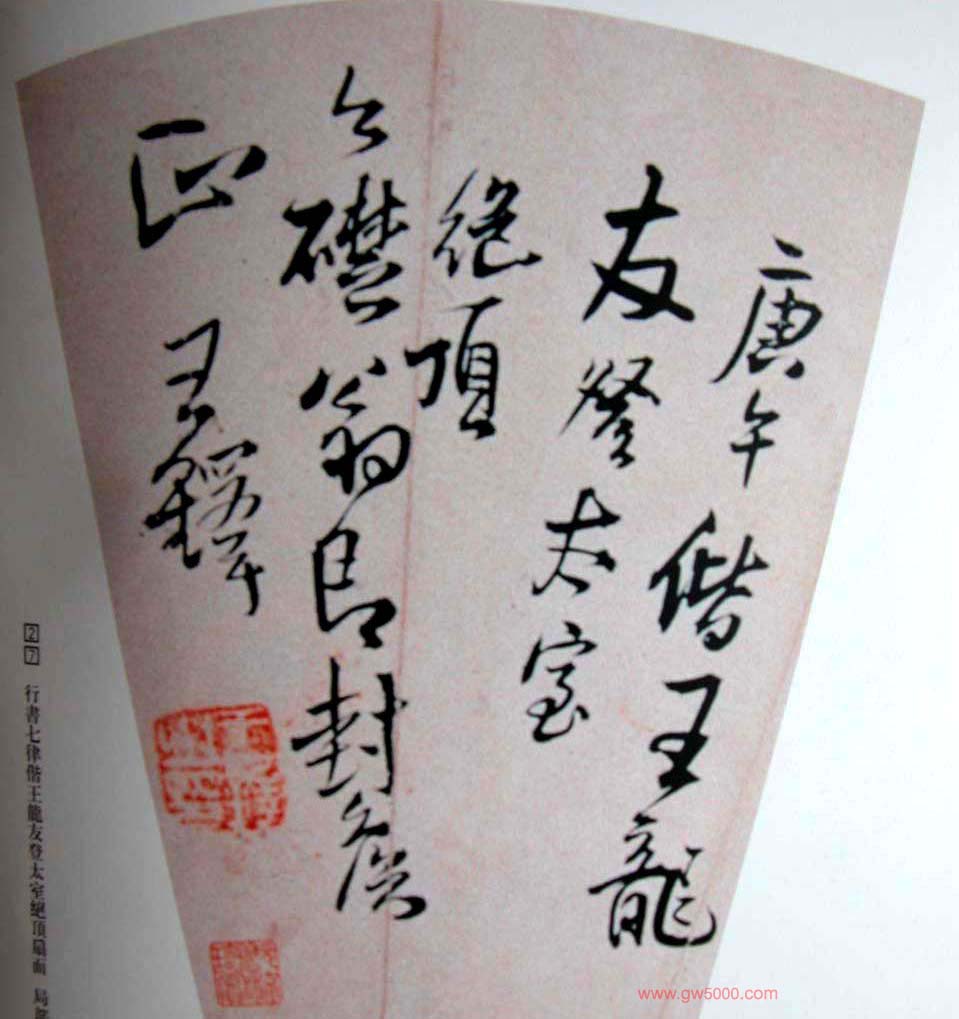 庚午偕王龍
友登太室
絕頂
礎翁良封詹
正 王鐸
27 行書七律偕王龍友登太室絕頂扇面 局部
www.gw5000.com